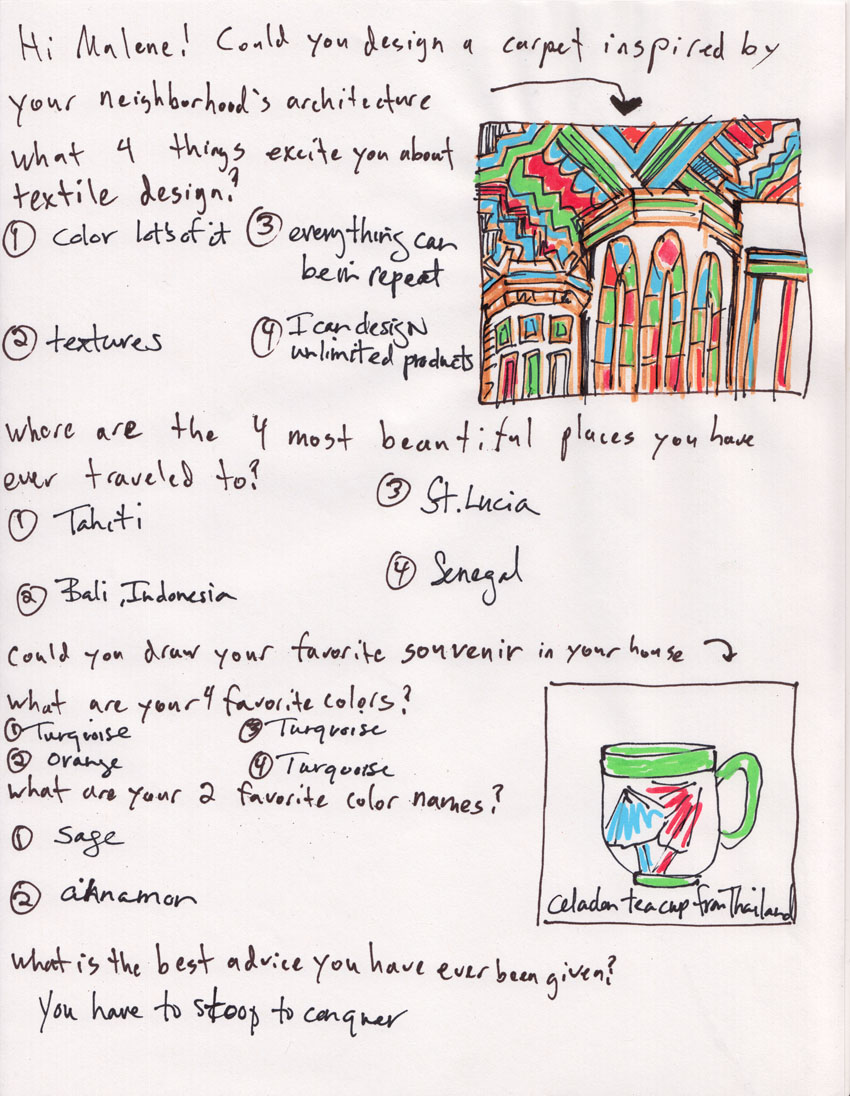 Hi Malene! Could you design a carpet inspired by
your neighborhood's architecture
what 4 things excite you about
textile design?
① Color lots of it
③ everything can
be in repeat
② textures
④ I can design
unlimited products
where are the 4 most beautiful places you have
ever traveled to?
① Tahiti
③ St. Lucia
② Bali, Indonesia
④ Senegal
could you draw your favorite souvenir in your house
what are your 4 favorite colors?
① Turquoise
③ Turquoise
② orange
④ Turquoise
what are your 2 favorite color names?
① Sage
② cinnamon
celadon tea cup from Thailand
what is the best advice you have ever been given?
You have to stoop to conquer